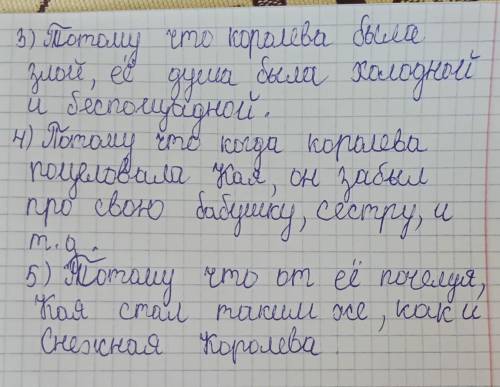 3) Потому что королева была
злой, её душа была холодной
и беспощадной.
4) Потому что когда королева
поцеловала Кая, он забыл
про свою бабушку, сестру, и
т.д.
5) Потому что от её поцелуя,
Кая стал таким же, как и
Снежная Королева.